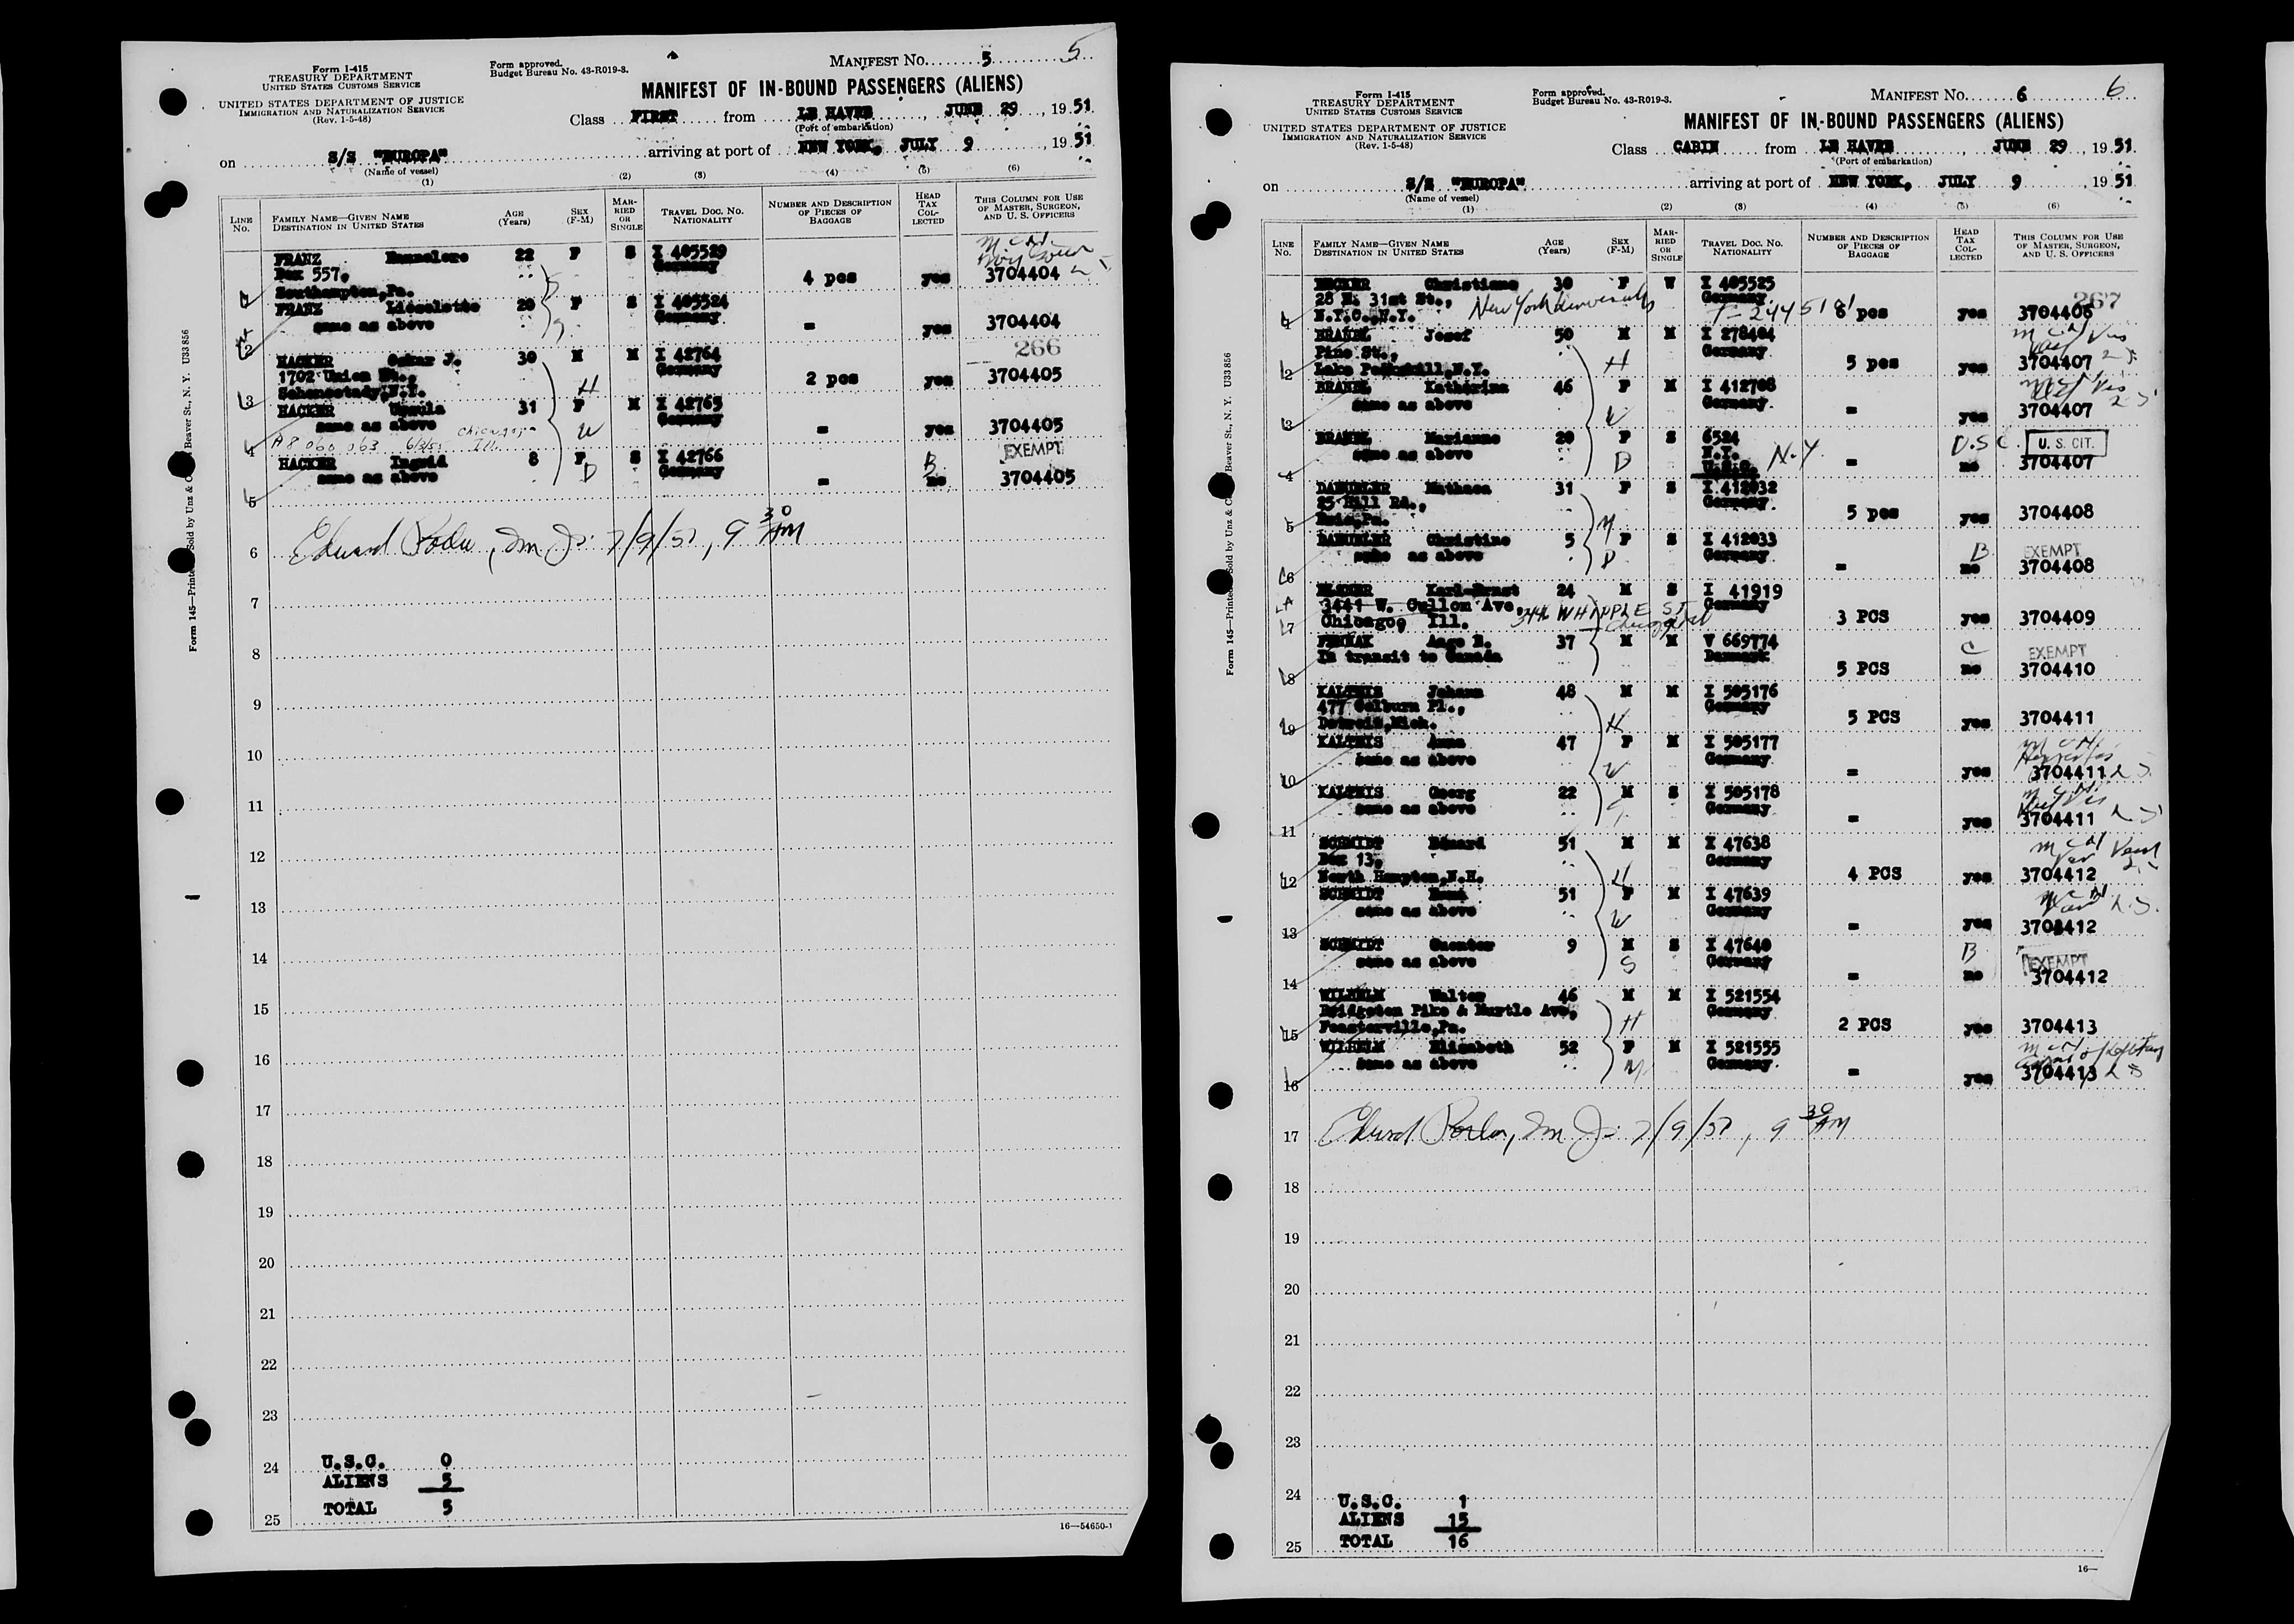 Form I-415
TREASURY DEPARTMENT
UNITED STATES CUSTOMS SERVICE
UNITED STATES DEPARTMENT OF JUSTICE
IMMIGRATION AND NATURALIZATION SERVICE
(Rev. 1-5-48)
Form approved.
Budget Bureau No. 43-R019-3.
MANIFEST No. 5 5
MANIFEST OF IN-BOUND PASSENGERS (ALIENS)
Class FIRST from LE HAVRE, JUNE 29, 1951
(Port of embarkation)
on S/S "EUROPA" arriving at port of NEW YORK, JULY 9, 1951
(Name of vessel)
(1) (2) (3) (4) (5) (6)
LINE No. FAMILY NAME—GIVEN NAME DESTINATION IN UNITED STATES AGE (Years) SEX (F-M) MARRIED OR SINGLE TRAVEL DOC. No. NATIONALITY NUMBER AND DESCRIPTION OF PIECES OF BAGGAGE HEAD TAX COLLECTED THIS COLUMN FOR USE OF MASTER, SURGEON, AND U. S. OFFICERS
FRANZ Hannelore 22 F S I 405529
Box 557, Germany
Southampton, Pa. 4 pcs yes 3704404
FRANZ Lieselotte 20 F S I 405524
same as above Germany
2 = yes 3704404
266
HACKER Oskar J. 30 M M I 42764
1702 Union St., Germany
3 Schenectady, N.Y. H 2 pcs yes 3704405
HACKER Ursula 31 F M I 42765
same as above Germany
4 A8 060 063 6/3/55 Chicago Ill. W = yes 3704405
HACKER Ingrid 8 F S I 42766 B EXEMPT
same as above D Germany
5 = no 3704405
6 Edward 7/9/51, 9 30 AM
7
8
9
10
11
12
13
14
15
16
17
18
19
20
21
22
23
24 U.S.C. 0
ALIENS 5
25 TOTAL 5
16—54650-1
Form 145—Printed Sold by Unz & C Beaver St., N. Y. U33856
Form I-415
TREASURY DEPARTMENT
UNITED STATES CUSTOMS SERVICE
UNITED STATES DEPARTMENT OF JUSTICE
IMMIGRATION AND NATURALIZATION SERVICE
(Rev. 1-5-48)
Form approved.
Budget Bureau No. 43-R019-3.
MANIFEST No. 6 6
MANIFEST OF IN-BOUND PASSENGERS (ALIENS)
Class CABIN from LE HAVRE, JUNE 29, 1951
(Port of embarkation)
on S/S "EUROPA" arriving at port of NEW YORK, JULY 9, 1951
(Name of vessel)
(1) (2) (3) (4) (5) (6)
LINE No. FAMILY NAME—GIVEN NAME DESTINATION IN UNITED STATES AGE (Years) SEX (F-M) MARRIED OR SINGLE TRAVEL DOC. No. NATIONALITY NUMBER AND DESCRIPTION OF PIECES OF BAGGAGE HEAD TAX COLLECTED THIS COLUMN FOR USE OF MASTER, SURGEON, AND U. S. OFFICERS
Christiane 30 F W I 405525
28 E. 31st St., New York University Germany 267
N.Y.C., N.Y. T-2445181 6 pcs yes 3704406
Josef 50 M M I 278404
Pine St., Germany
2 Lake Peekskill, N.Y. H 5 pcs yes 3704407
Katharina 46 F M I 412708
same as above Germany
3 W = yes 3704407
Marianne 20 F S 6524 U.S.C U. S. CIT.
same as above D N.Y. N.Y.
4 U.S.C. = no 3704407
31 F S I 412032
25 Hill Rd., Germany
5 M 5 pcs yes 3704408
Christine 5 F S I 412033 B EXEMPT
same as above D Germany
6 = no 3704408
Karl-Ernst 24 M S I 41919
3441 W. Cullom Ave, Germany
7 Chicago, Ill. 3446 WHIPPLE ST Chicago 3 PCS yes 3704409
Aage 37 M M V 669774 C EXEMPT
In transit to Canada Denmark
8 5 PCS no 3704410
KALTEIS Johann 48 M M I 505176
477 Colburn Pl., Germany
9 Detroit, Mich. H 5 PCS yes 3704411
KALTEIS Anna 47 F M I 505177
same as above Germany
10 W = yes 3704411
KALTEIS Georg 22 M S I 505178
same as above Germany
11 = yes 3704411
SCHMIDT Eduard 51 M M I 47638
Box 13, Germany
12 North Hampton, N.H. H 4 PCS yes 3704412
SCHMIDT 51 F M I 47639
same as above Germany
13 W = yes 3704412
SCHMIDT Guenter 9 M S I 47640 B EXEMPT
same as above S Germany
14 = no 3704412
WILHELM Walter 46 M M I 521554
Bridgeton Pike & Myrtle Ave, Germany
15 Feasterville, Pa. H 2 PCS yes 3704413
WILHELM Elisabeth 52 F M I 521555
same as above Germany
16 = yes 3704413
17 Edward 7/9/51, 9 30 AM
18
19
20
21
22
23
24 U.S.C. 1
ALIENS 15
25 TOTAL 16
16—
Form 145—Printed Sold by Unz & C Beaver St., N. Y. U33856